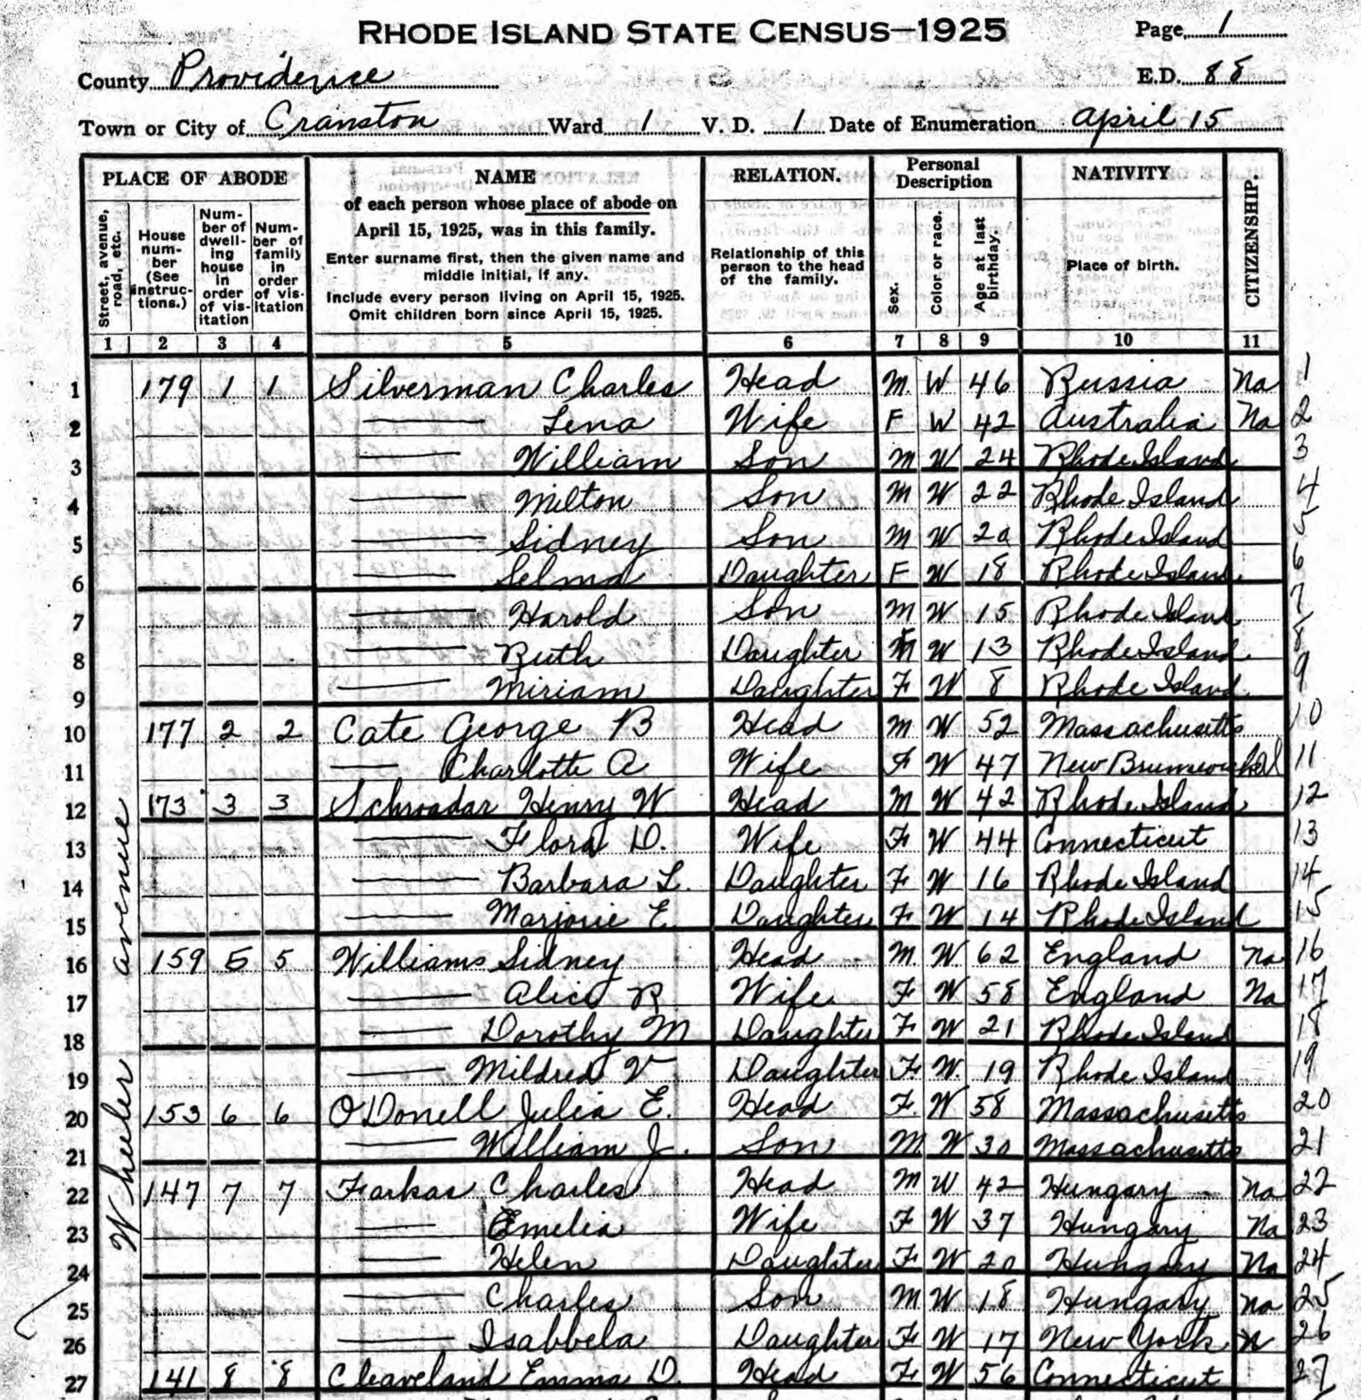 RHODE ISLAND STATE CENSUS—1925 Page 1
County Providence E.D. 88
Town or City of Cranston Ward 1 V. D. 1 Date of Enumeration April 15
PLACE OF ABODE NAME RELATION. Personal Description NATIVITY CITIZENSHIP.
Street, avenue, road, etc. House number (See instructions.) Number of dwelling house in order of visitation Number of family in order of visitation of each person whose place of abode on April 15, 1925, was in this family. Enter surname first, then the given name and middle initial, if any. Include every person living on April 15, 1925. Omit children born since April 15, 1925. Relationship of this person to the head of the family. Sex. Color or race. Age at last birthday. Place of birth.
1 2 3 4 5 6 7 8 9 10 11
Wheeler avenue
1 179 1 1 Silverman Charles Head M. W 46 Russia Na 1
2 — Lena Wife F W 42 Australia Na 2
3 — William Son M W 24 Rhode Island 3
4 — Milton Son M W 22 Rhode Island 4
5 — Sidney Son M W 20 Rhode Island 5
6 — Selma Daughter F W 18 Rhode Island 6
7 — Harold Son M W 15 Rhode Island 7
8 — Ruth Daughter F W 13 Rhode Island 8
9 — Miriam Daughter F W 8 Rhode Island 9
10 177 2 2 Cate George B Head M W 52 Massachusetts 10
11 — Charlotte A Wife F W 47 New Brunswick 11
12 173 3 3 Schroadar Henry W Head M W 42 Rhode Island 12
13 — Flora D. Wife F W 44 Connecticut 13
14 — Barbara L. Daughter F W 16 Rhode Island 14
15 — Marjorie E. Daughter F W 14 Rhode Island 15
16 159 5 5 Williams Sidney Head M W 62 England na 16
17 — Alice R Wife F W 58 England Na 17
18 — Dorothy M Daughter F W 21 Rhode Island 18
19 — Mildred V Daughter F W. 19 Rhode Island 19
20 153 6 6 O'Donell Julia E. Head F. W 58 Massachusetts 20
21 — William J. Son M. W 30 Massachusetts 21
22 147 7 7 Farkas Charles Head M W 42 Hungary Na 22
23 — Emelia Wife F W 37 Hungary Na 23
24 — Helen Daughter F W 20 Hungary Na 24
25 — Charles Son M W 18 Hungary na 25
26 — Isabbela Daughter F W 17 New York N 26
27 141 8 8 Cleaveland Emma D. Head F W 56 Connecticut 27